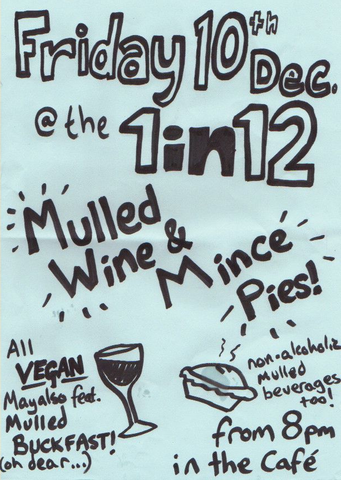 Friday 10th Dec.
@ the 1in12
Mulled
Wine &
Mince
Pies!
All
VEGAN
May also feat.
Mulled
BUCKFAST!
(oh dear...)
non-alcoholic
Mulled
beverages
too!
from 8pm
in the Café